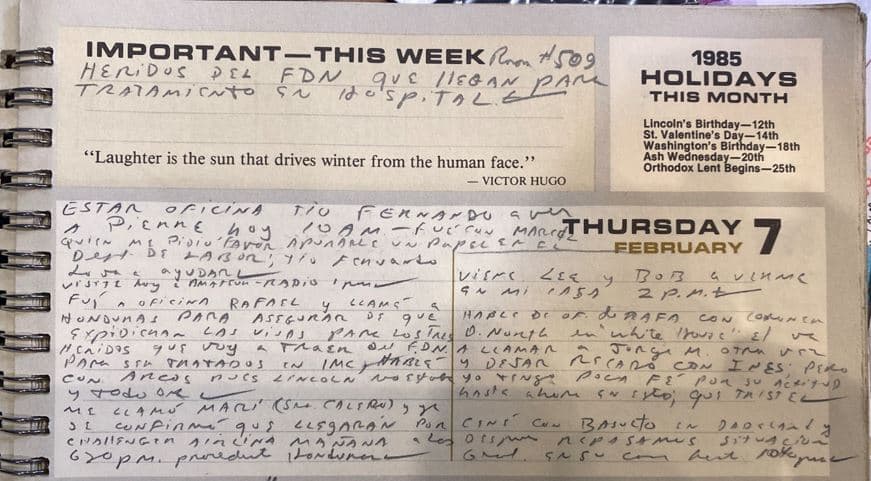 IMPORTANT—THIS WEEK Room #509
HERIDOS DEL FDN QUE LLEGAN PARA
TRATAMIENTO EN HOSPITAL
"Laughter is the sun that drives winter from the human face."
— VICTOR HUGO
1985
HOLIDAYS
THIS MONTH
Lincoln's Birthday—12th
St. Valentine's Day—14th
Washington's Birthday—18th
Ash Wednesday—20th
Orthodox Lent Begins—25th
THURSDAY 7
FEBRUARY
ESTAR OFICINA TIO FERNANDO a ver
A PIERRE hoy 10 A.M. – FUÉ CON MARCEL
QUIEN ME PIDIÓ FAVOR UN PAPEL EN EL
Dept DE LABOR; TIO Fernando
Lo va a AYUDAR
VISITÉ hoy a AMATEUR-RADIO
FUÍ A OFICINA RAFAEL y LLAMÉ a
HONDURAS PARA ASEGURAR DE QUE
EXPIDIERAN LAS VISAS PARA LOS TRES
HERIDOS QUE VOY A TRAER DEL F.D.N.
PARA SER TRATADOS EN IMC, HABLÉ
CON ARCOS PUES LINCOLN NO ESTABA
y TODO OK
ME LLAMÓ MARÍ (Sra CALERO) y ya
SE CONFIRMÓ QUE LLEGARÁN POR
CHALLENGER AIRLINA MAÑANA a las
620 p.m. Honduras
VIENE LEE y BOB a VERME
EN MI CASA 2 P.M.
HABLÉ DE OF. de RAFA CON
O. North en "White House" El va
A LLAMAR a JORGE M. OTRA VEZ
y DEJAR RECADO CON INES; PERO
yo TENGO POCA FÉ POR SU ACTITUD
hasta ahora EN ESTO; QUE TRISTE
CENÉ CON BASULTO EN DADELAND y
DESPUES REPASAMOS SITUACION
Gral. EN SU